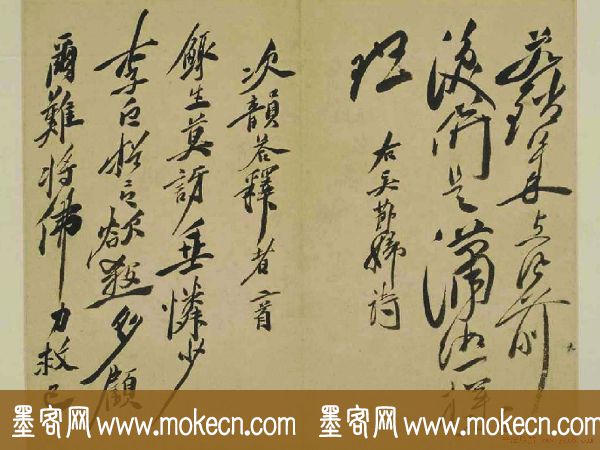 來 前
後 是瀟湘一
班
右吳節婦詩
次韻答釋者二首
鯫生莫訝垂憐少
李白於今欲殺多顧
爾難將佛力救
墨客网 www.mokecn.com 墨客网 www.mokecn.com